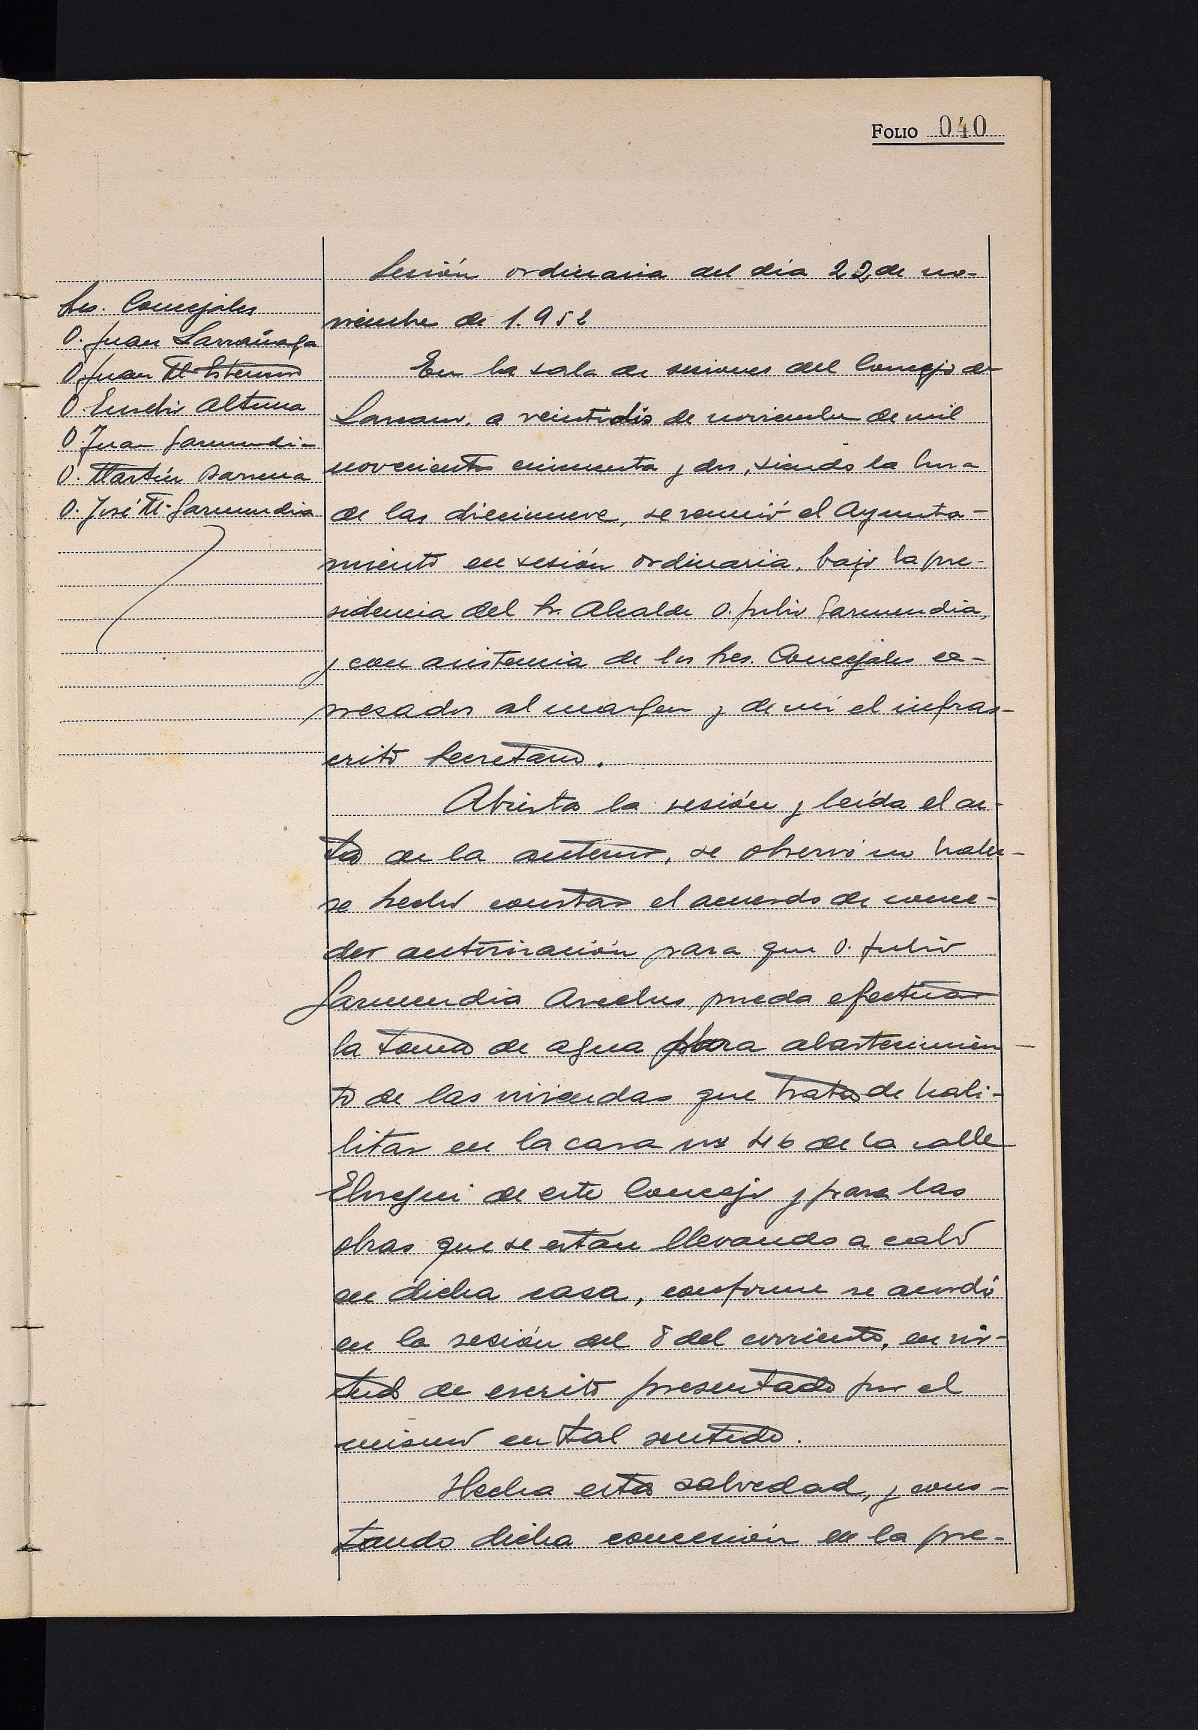 FOLIO 040
Sres. Concejales
D. Juan Larrañaga
D. Juan M.
D. Eusebio Altuna
D. Juan Garmendia
D. Martín Barrena
D. José M. Garmendia
Sesión ordinaria del día 22 de no-
viembre de 1.952
En la sala de sesiones del Concejo de
Lazcano, a veintidós de noviembre de mil
novecientos cincuenta y dos, siendo la hora
de las diecinueve, se reunió el Ayunta-
miento en sesión ordinaria, bajo la pre-
sidencia del Sr. Alcalde D. Julio Garmendia,
y con asistencia de los Sres. Concejales ex-
presados al margen y de mí el infras-
crito Secretario.
Abierta la sesión y leída el ac-
ta de la anterior, se observó no haber-
se hecho constar el acuerdo de conce-
der autorización para que D. Julio
Garmendia Arcelus, pueda efectuar
la toma de agua para abastecimien-
to de las viviendas que trata de habi-
litar en la casa nº 46 de la calle
Elosegui de este Concejo y para las
obras que se estan llevando a cabo
en dicha casa, conforme se acordó
en la sesión del 8 del corriente, en vir-
tud de escrito presentado por el
mismo en tal sentido.
Hecha esta salvedad, y cons-
tando dicha concesión en la pre-